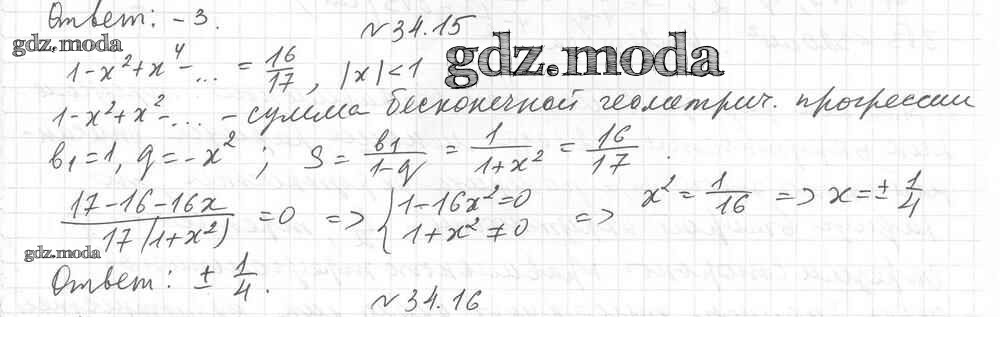 Ответ: -3.
№34.15
gdz.moda
1-x²+x⁴-... = 16/17, |x|<1
gdz.moda
1-x²+x²-... - сумма бесконечной геометрич. прогрессии
b₁=1, q=-x²; S = b₁/(1-q) = 1/(1+x²) = 16/17.
(17-16-16x)/(17(1+x²)) = 0 => { 1-16x²=0 1+x²≠0 => x² = 1/16 => x = ± 1/4
gdz.moda
Ответ: ± 1/4.
№34.16